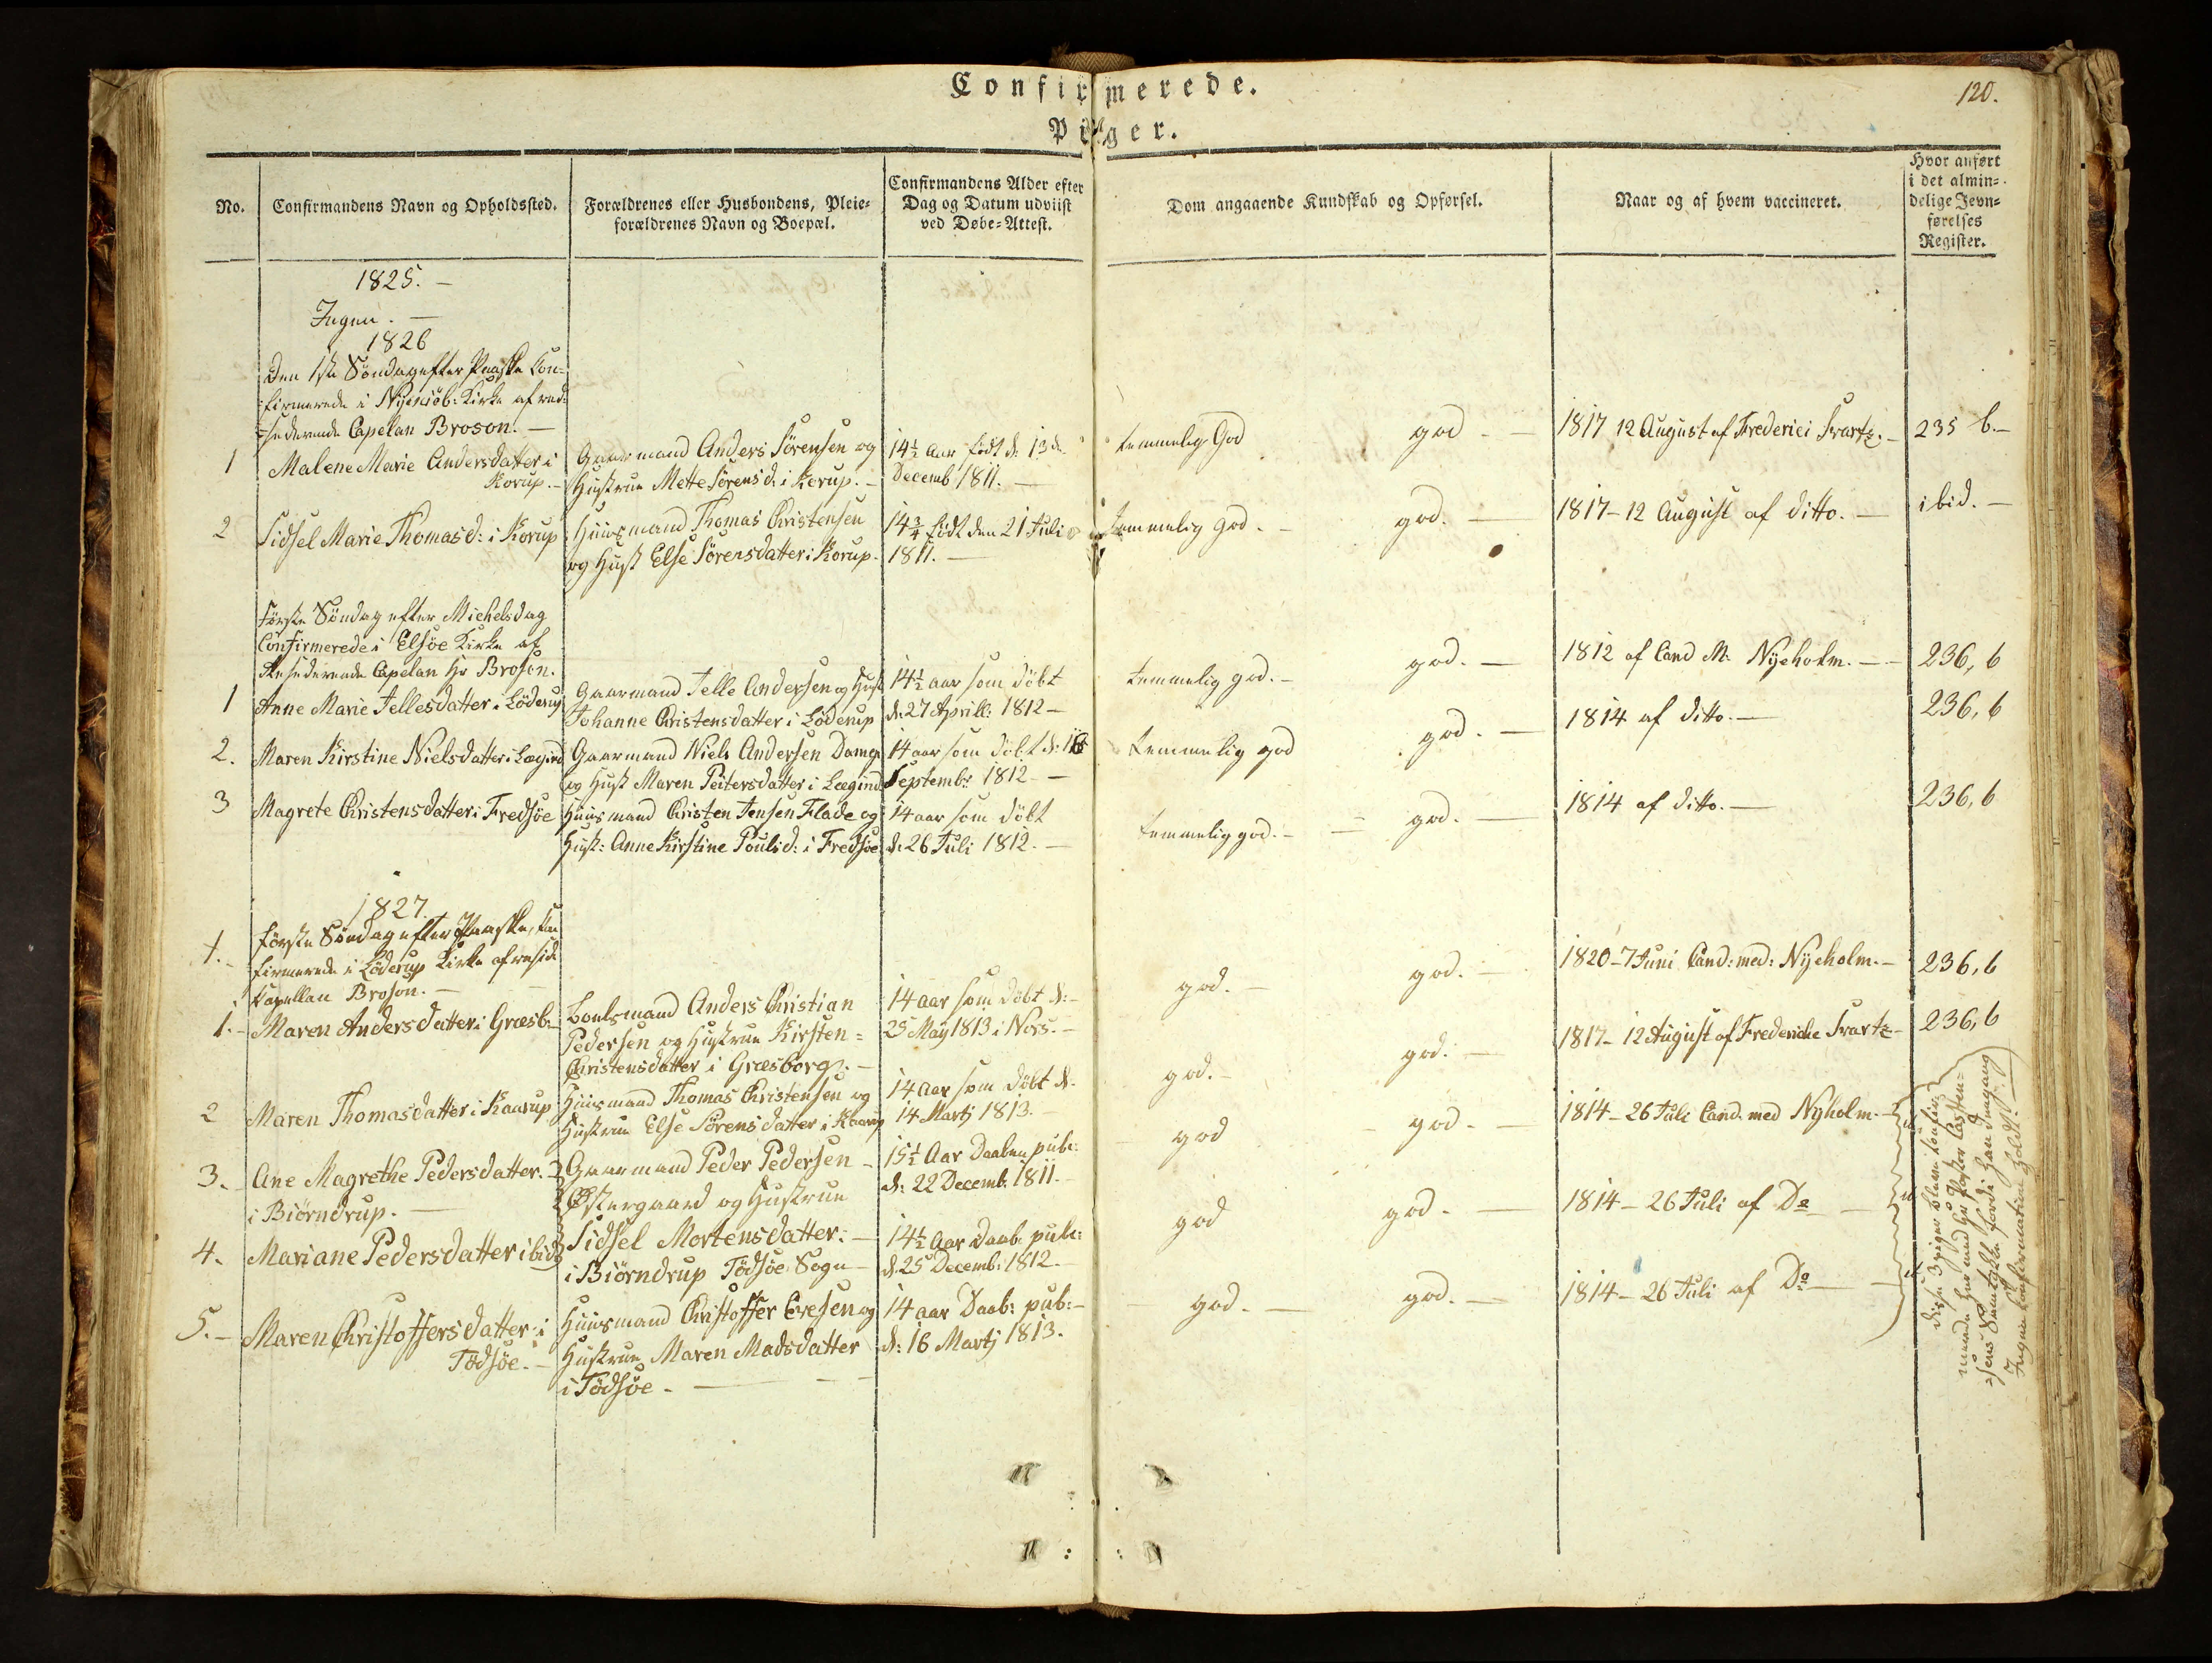 Confirmerede.
Piger.
120.
No.
Confirmandens Navn og Opholdssted.
Forældrenes eller Husbondens, Pleie=
forældrenes Navn og Boepæl.
Confirmandens Alder efter
Dag og Datum udviist
ved Døbe=Attest.
Dom angaaende Kundskab og Opførsel.
Naar og af hvem vaccineret.
Hvor anført
i det almin=
delige Jevn=
førelses
Register.
1825. -
Ingen. -
1826
Den 1ste Søndag efter Paaske Con=
firmerede i Kirke af
Capelan Broson. -
1
Malene Marie Andersdatter i
Korup. -
Gaardmand Anders Sørensen og
Hustrue Mette Sørensd. i Korup. -
14½ Aar født d: 13de
Decemb 1811. -
temmelig God
god -
1817 12 August af Frederici Svartz. -
235 b. -
2
Sidsel Marie Thomasd: i Korup
Huusmand Thomas Christensen
og Hust Else Sørensdatter i Korup.
14¾ født den 21 Juli
1811. -
temmelig god. -
god. -
1817 - 12 August af ditto. -
ibid. -
Første Søndag efter Michelsdag
Confirmerede i Elsøe Kirke af
Resederende Capelan Hr Broson.
1
Anne Marie Jellesdatter i Löderup
Gaarmand Jelle Andersen og Hust
Johanne Christensdatter i Löderup
14½ aar som döbt
d: 27 Aprill: 1812 -
temmelig god. -
god. -
1812 af Cand M. Nyeholm. -
236, b
2.
Maren Kirstine Nielsdatter i Lægind
Gaarmand Niels Andersen Damg
og Hust Maren Peitersdatter i Lægind
14 aar som döbt d: 16
Septembr 1812 -
temmelig god
god. -
1814 af ditto. -
236, b
3
Magrete Christensdatter i Fredsøe
Huusmand Christen Jensen Flade og
Hust: Anne Kirstine Poulsd: i Fredsøe
14 aar som döbt
d: 26 Juli 1812. -
temmelig god. -
god. -
1814 af ditto. -
236, b
1827.
1. -
Første Søndag efter Paaske, Con
firmerede i Löderup Kirke af resid
Capellan Broson. -
1. -
Maren Andersdatter i Græsb. -
Boelsmand Anders Christian
Pedersen og Hustrue Kirsten =
Christensdatter i Græsborg. -
14 aar som döbt d: -
25 May 1813 i Nors. -
god. -
god. -
1820 - 7 Juni Cand: med: Nyeholm. -
236, b
2
Maren Thomasdatter i Kaarup
Huusmand Thomas Christensen og
Hustrue Else Sörensdatter i Kaarup
14 aar som döbt d.
14 Martj 1813. -
god. -
god. -
1817 - 12 August af Frederiche Svartz -
236, b
3. -
Ane Magrethe Pedersdatter. -
i Biörndrup. -
Gaarmand Peder Pedersen -
Østergaard og Hustrue
Sidsel Mortensdatter. -
i Biörndrup Tödsøe Sogn -
15½ Aar Daaben pub:
d: 22 Decemb. 1811. -
god
god. -
1814 - 26 Juli Cand. med Nyholm. -
4.
Mariane Pedersdatter ibid
14½ Aar Daab: pub:
d. 25 Decemb: 1812. -
god
god. -
1814 - 26 Juli af Do -
5. -
Maren Christoffersdatter i
Tödsøe. -
Huusmand Christoffer Evesen og
Hustrue Maren Madsdatter
i Tödsøe. -
14 aar Daab: pub: -
d: 16 Martj 1813.
god. -
god. -
1814 - 26 Juli af Do -
disse 3 piger bleve Confir=
merede her med Hr Pastor Carsten=
sens Samtykke fordi han Ingang
Ingen Confirmation holdt. -